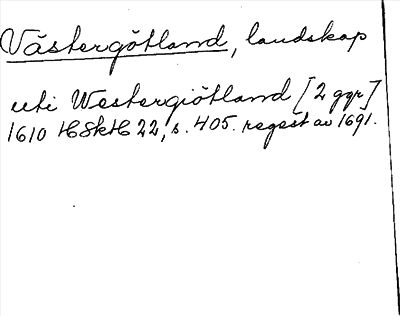 Västergötland, landskap
uti Westergiötland [2 ggr]
1610 HSkH 22, s. 405. regest av 1691.